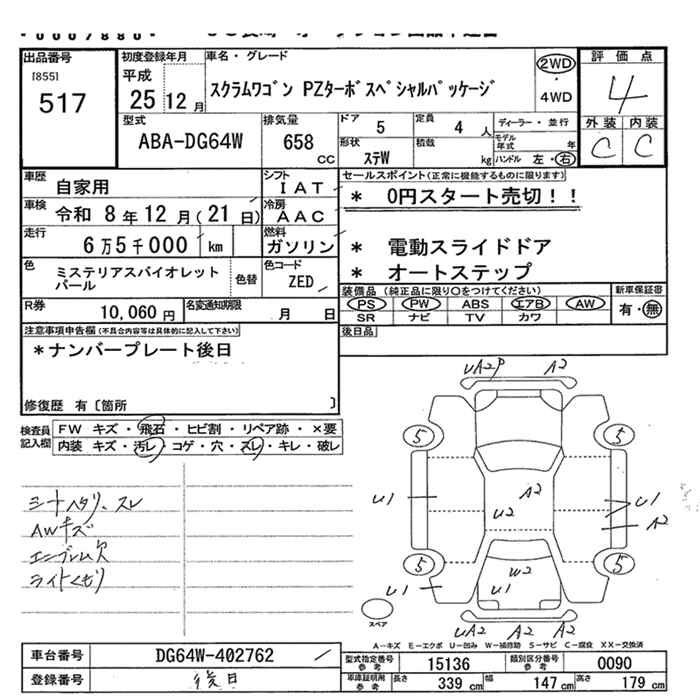 出品番号
[855]
517
初度登録年月
平成
25 12 月
車名・グレード
スクラムワゴン PZターボスペシャルパッケージ
2WD
4WD
評価点
4
外装 内装
C C
型式
ABA-DG64W
排気量
658 cc
ドア 5
定員 4 人
形状 ステW
積載 kg
ディーラー・並行
モデル年式 年
ハンドル 左・右
車歴
自家用
シフト
IAT
セールスポイント(正常に機能するものに限ります)
* 0円スタート売切!!
車検
令和 8年12月(21日)
冷房
AAC
走行
6万5千000 km
燃料
ガソリン
* 電動スライドドア
* オートステップ
色
ミステリアスバイオレットパール
色替
色コード
ZED
装備品(純正品に限り○をつけてください)
PS PW ABS エアB AW
SR ナビ TV カワ
新車保証書
有・無
R券
10,060円
名変通知期限
月 日
後日品
注意事項申告欄(不具合内容等は具体的に記入して下さい)
*ナンバープレート後日
修復歴 有〔箇所 〕
検査員記入欄
FW キズ・飛石・ヒビ割・リペア跡・×要
内装 キズ・汚レ・コゲ・穴・スレ・キレ・破レ
シートヘタリ、スレ
AWキズ
エンブレム欠
ライトくもり
UA2P A2
5 5
U1 A2 U1
U2 A2
5 5
W2
U1 U1
UA2 A2 A2
スペア
A-キズ E-エクボ U-凹み W-補修跡 S-サビ C-腐食 XX-交換済
車台番号
DG64W-402762
登録番号
後日
型式指定番号 参考
15136
類別区分番号 参考
0090
車庫証明用 参考
長さ 339 cm
幅 147 cm
高さ 179 cm